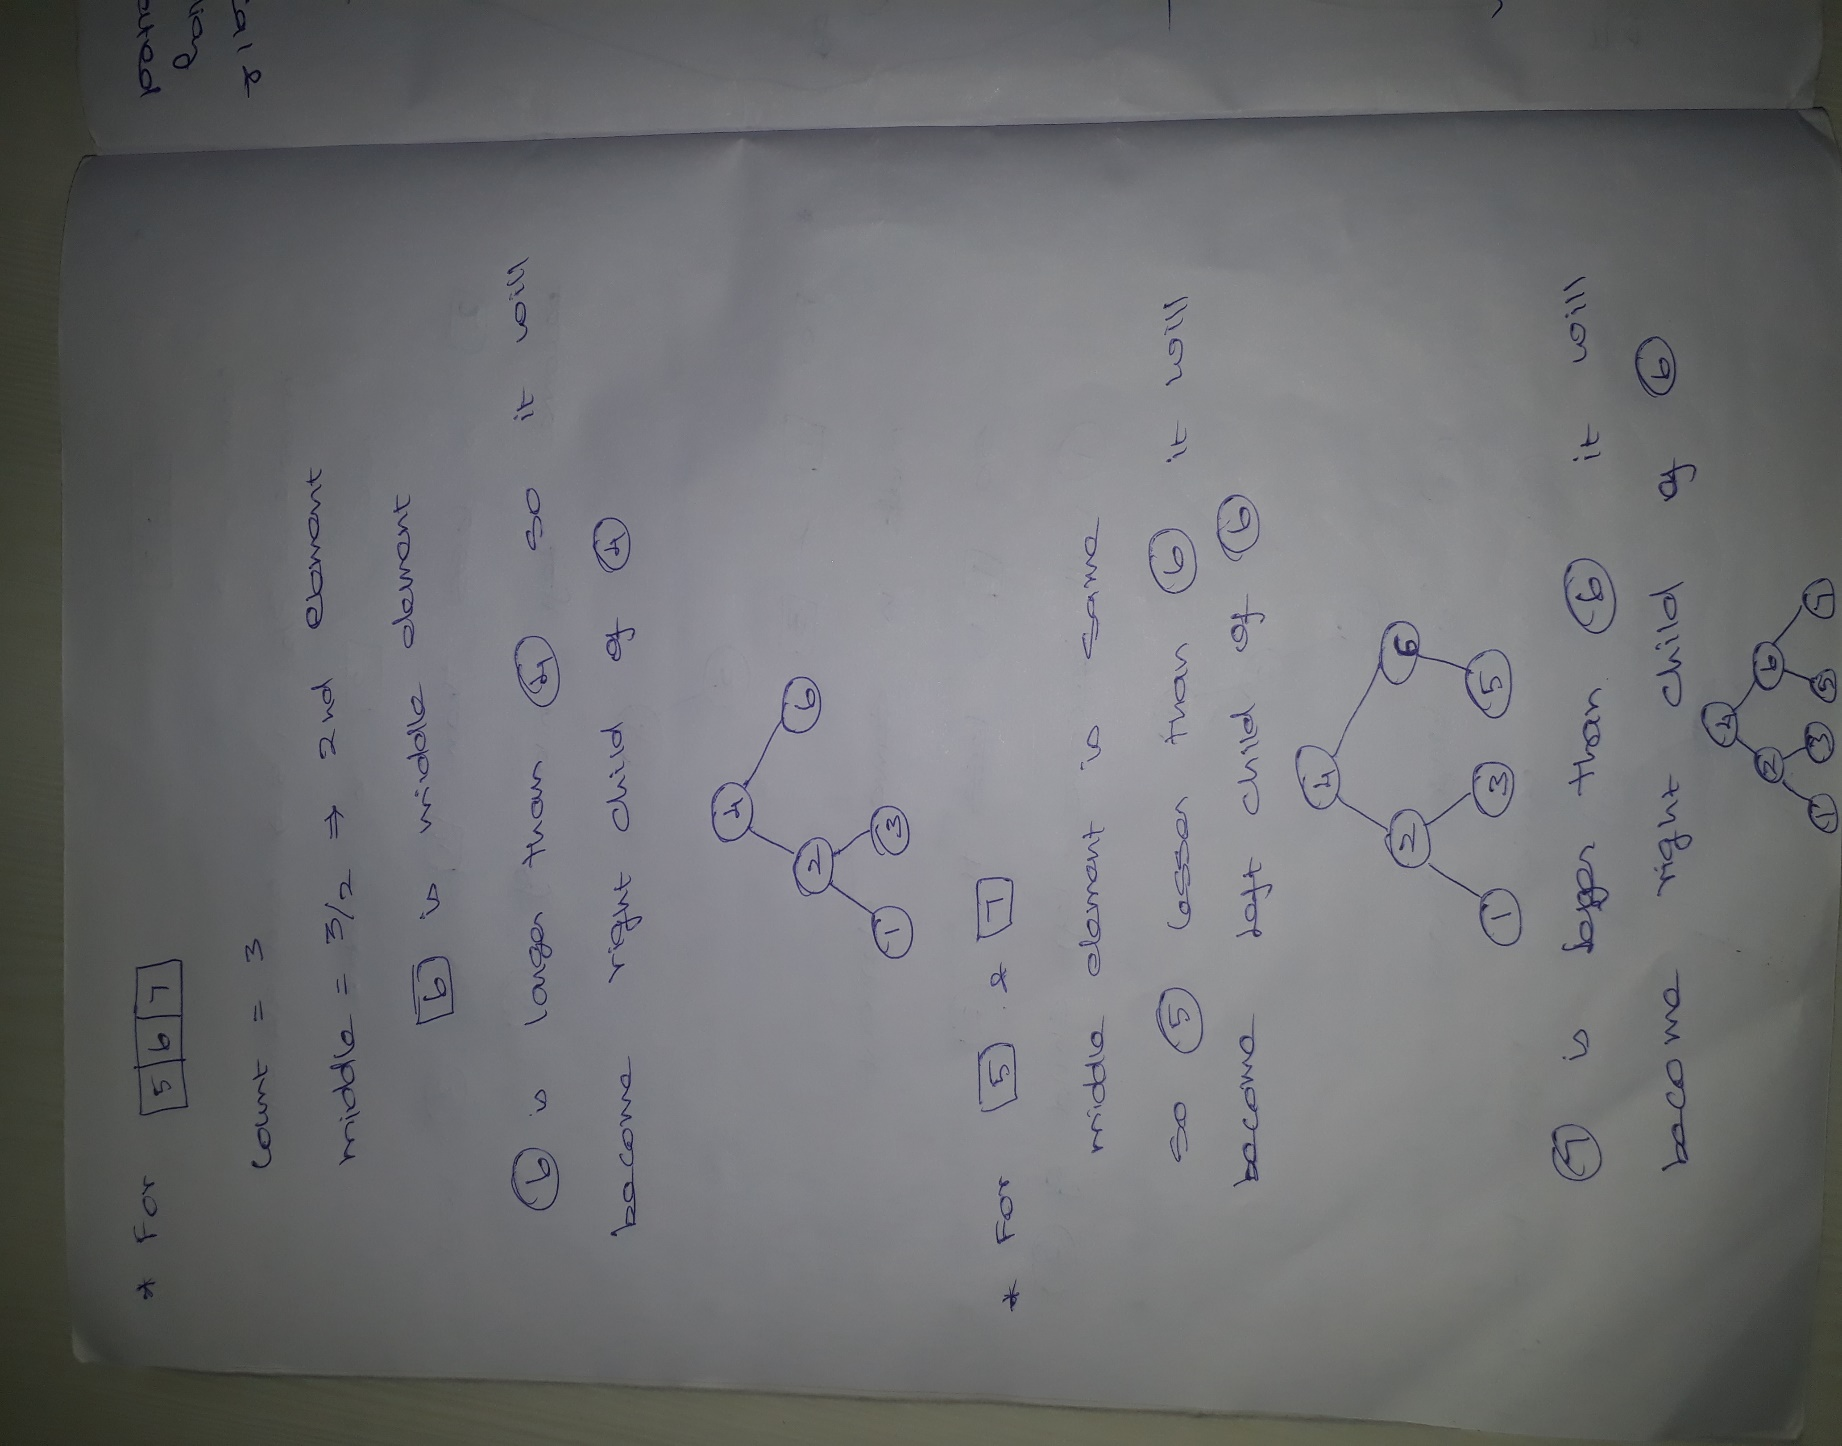 * For 5 6 7
count = 3
middle = 3/2 ⇒ 2nd element
6 is middle element
6 is larger than 4 so it will
become right child of 4
4
6
2
3
1
* For 5 & 7
middle element is same
so 5 lesser than 6 it will
become left child of 6
4
6
2
3
5
1
7 is bigger than 6 it will
become right child of 6
4
2
6
1
3
5
7